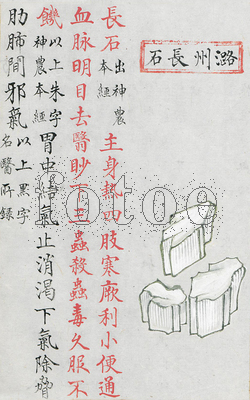 石長州潞
長石出神農本經主身熱四肢寒厥利小便通
血脉明目去醫眇下三蟲殺蟲毒久服不
饑以上朱字神農本經胃中結氣止消渴下氣除脅
肋肺間邪氣以上黑字名醫所錄
fotoe